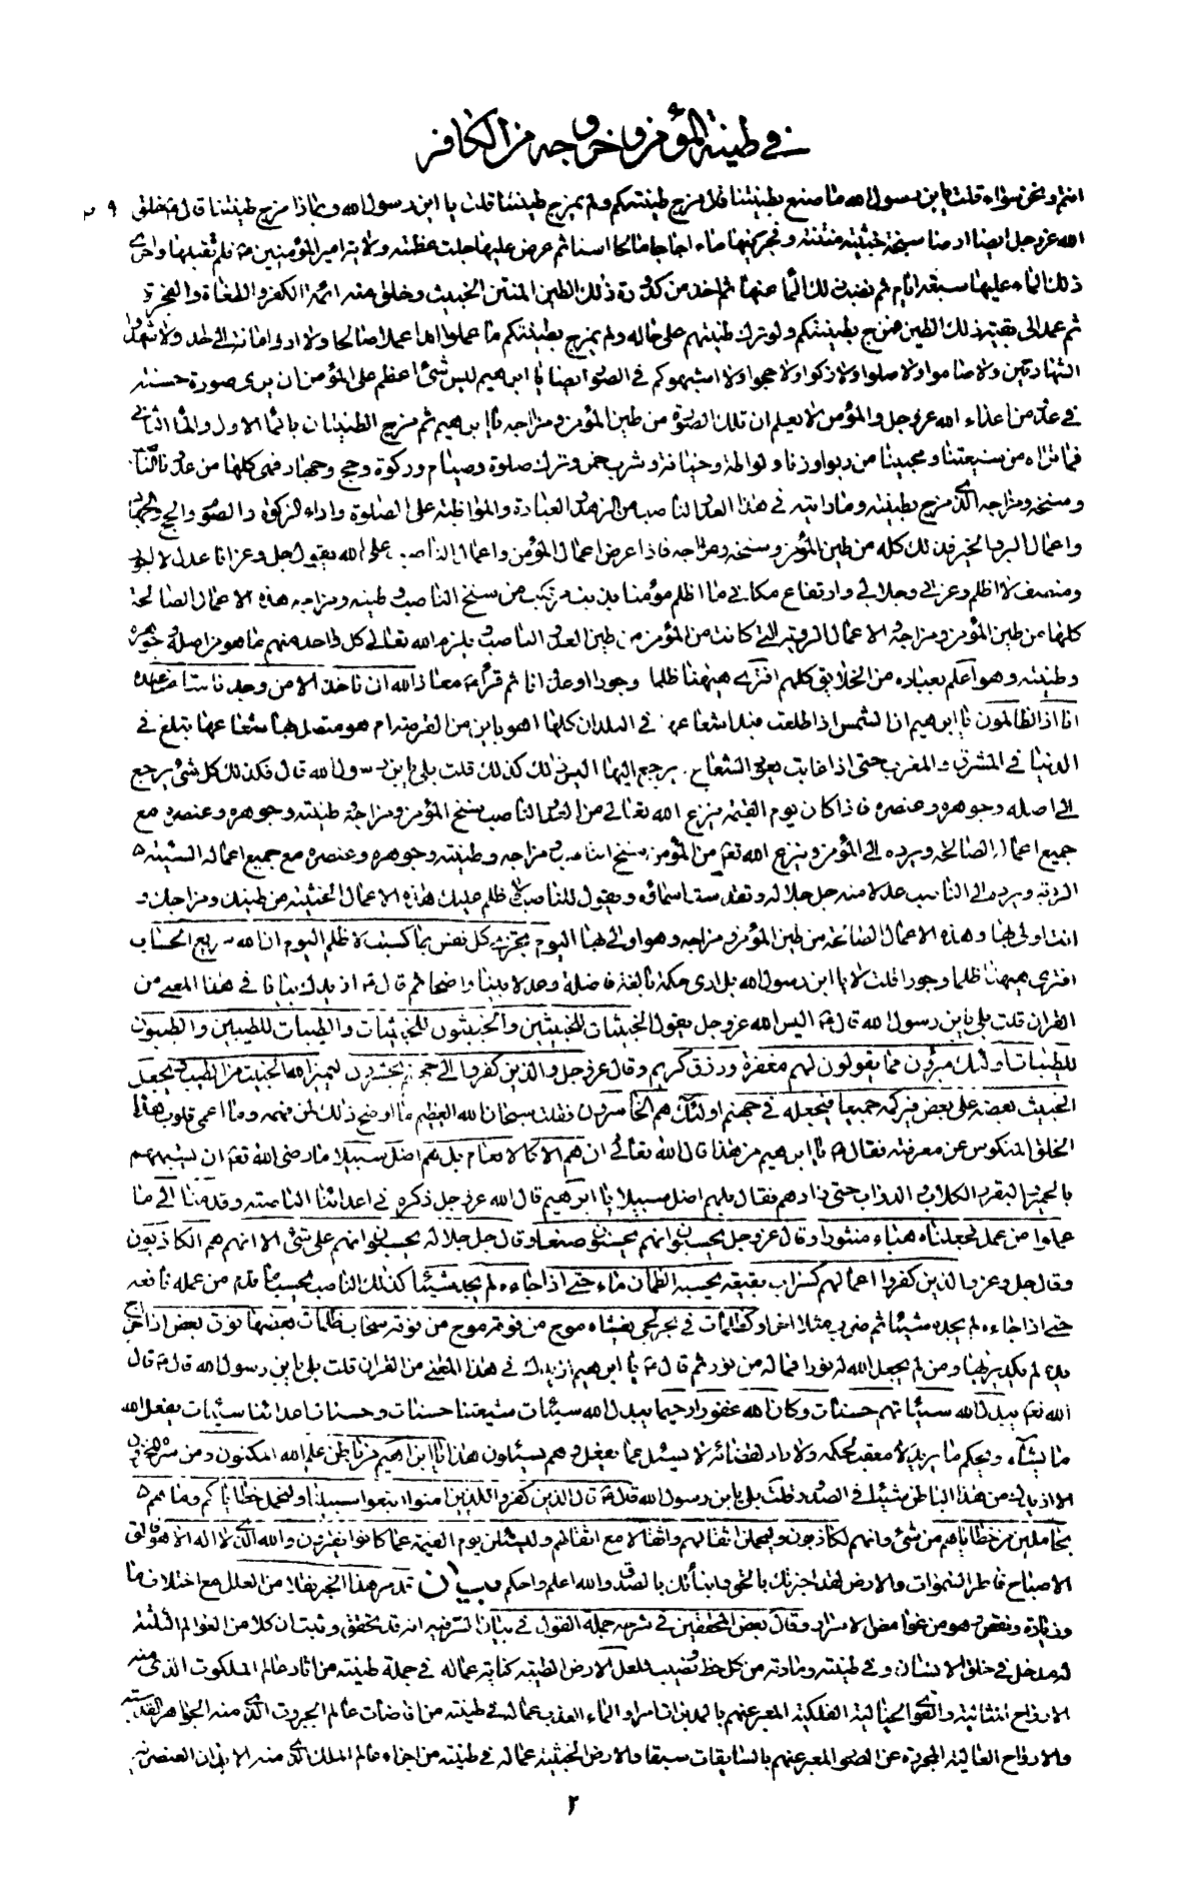 في طينة المؤمن و خروجه من الكافر
انتم و نحن سواء قلت يابن رسول الله ما صنع بطينتنا قال مزج طينتكم ولم يمزج طينتنا قلت يا ابن رسول الله و بماذا مزج طينتنا قال ع خلق ٩
الله عز و جل ايضا ارضا سبخة خبيثة منتنة و فجر فيها ماء اجاجا مالحا اسنا ثم عرض عليها جلت عظمته ولاية امير المؤمنين ع فلم تقبلها و اجرى
ذلك الماء عليها سبعة ايام ثم نضب ذلك الماء عنها ثم اخذ من كدورة ذلك الطين المنتن الخبيث و خلق منه ائمة الكفر و الطغاة و الفجرة
ثم عمد الى بقية ذلك الطين فمزج بطينتكم و لو ترك طينتهم على حاله و لم يمزج بطينتكم ما عملوا ابدا عملا صالحا و لا ادوا امانة الى احد و لا شهدوا
الشهادتين و لا صاموا و لا صلوا و لا زكوا و لا حجوا و لا اشبهوكم في الصور ايضا يا ابرهيم ليس شئ اعظم على المؤمن ان يرى صورة حسنة
في عدو من اعداء الله عز و جل و المؤمن لا يعلم ان تلك الصورة من طين المؤمن و مزاجه يا ابرهيم ثم مزج الطينتان بالماء الاول و الماء الثاني
فما تراه من شيعتنا و محبينا من ربوا و زنا و لواطة و خيانة و شرب خمر و ترك صلوة و صيام و زكوة و حج و جهاد فهى كلها من عدونا الناصب
و سنخه و مزاجه الذى مزج بطينته و ما رايته في هذا العدو الناصب من الزهد و العبادة و المواظبة على الصلوة و اداء الزكوة و الصوم و الحج و الجهاد
و اعمال البر و الخير فذلك كله من طين المؤمن و سنخه و مزاجه فاذا عرض اعمال المؤمن و اعمال الناصب على الله يقول جل و عز انا عدل لا اجور
و منصف لا اظلم و عزتي و جلالي و ارتفاع مكاني ما اظلم مؤمنا بذنب مرتكب من سنخ الناصب و طينه و مزاجه هذه الاعمال الصالحة
كلها من طين المؤمن و مزاجه و الاعمال الردية التي كانت من المؤمن من طين العدو الناصب و يلزم الله تعالى كل واحد منهم ما هو من اصله و جوهره
و طينته و هو اعلم بعباده من الخلايق كلهم افترى هيهنا ظلما و جورا و عدوانا ثم قرأ ع معاذ الله ان ناخذ الا من وجدنا متاعنا عنده
انا اذا لظالمون يا ابرهيم ان الشمس اذا طلعت فبدا شعاعها في البلدان كلها اهو باين من القرصة ام هو متصل بها شعاعها تبلغ في
الدنيا في المشرق و المغرب حتى اذا غابت يعود الشعاع و يرجع اليها اليس ذلك كذلك قلت بلى يابن رسول الله قال فكذلك كل شئ يرجع
الى اصله و جوهره و عنصره فاذا كان يوم القيمة ينزع الله تعالى من العدو الناصب سنخ المؤمن و مزاجه و طينته و جوهره و عنصره مع
جميع اعماله الصالحة و يرده الى المؤمن و ينزع الله تعم من المؤمن سنخ الناصب و مزاجه و طينته و جوهره و عنصره مع جميع اعماله السيئة
الردية و يرده الى الناصب عدلا منه جل جلاله و تقدست اسماؤه و يقول للناصب لا ظلم عليك هذه الاعمال الخبيثة من طينتك و مزاجك و
انت اولى بها و هذه الاعمال الصالحة من طين المؤمن و مزاجه و هو اولى بها اليوم تجزى كل نفس بما كسبت لا ظلم اليوم ان الله سريع الحساب
افترى هيهنا ظلما و جورا قلت لا يا ابن رسول الله بل ارى حكمة بالغة فاضلة و عدلا بينا واضحا ثم قال ع ازيدك بيانا في هذا المعنى من
القران قلت بلى يابن رسول الله قال ع اليس الله عز و جل يقول الخبيثات للخبيثين و الخبيثون للخبيثات و الطيبات للطيبين و الطيبون
للطيبات اولئك مبرؤن مما يقولون لهم مغفرة و رزق كريم و قال عز و جل و الذين كفروا الى جهنم يحشرون ليميز الله الخبيث من الطيب و يجعل
الخبيث بعضه على بعض فيركمه جميعا فيجعله في جهنم اولئك هم الخاسرون فقلت سبحان الله العظيم ما اوضح ذلك لمن فهمه و ما اعمى قلوب هذا
الخلق المنكوس عن معرفته فقال ع يا ابرهيم من هذا قال الله تعالى ان هم الا كالانعام بل هم اضل سبيلا ما رضى الله تعم ان يشبههم
بالحمير و البقر و الكلاب و الدواب حتى زادهم فقال بل هم اضل سبيلا يا ابرهيم قال الله عز و جل ذكره في اعدائنا الناصبة و قدمنا الى ما
عملوا من عمل فجعلناه هباء منثورا و قال عز و جل يحسبون انهم يحسنون صنعا و قال جل جلاله يحسبون انهم على شئ الا انهم هم الكاذبون
و قال جل و عز و الذين كفروا اعمالهم كسراب بقيعة يحسبه الظمآن ماء حتى اذا جاءه لم يجده شيئا كذلك الناصب يحسب ما قدم من عمله نافعه
حتى اذا جاءه لم يجده شيئا ثم ضرب مثلا اخر او كظلمات في بحر لجى يغشاه موج من فوقه موج من فوقه سحاب ظلمات بعضها فوق بعض اذا اخرج
يده لم يكد يريها و من لم يجعل الله له نورا فما له من نور ثم قال ع يا ابرهيم ازيدك في هذا المعنى من القران قلت بلى يابن رسول الله قال ع قال
الله تعم يبدل الله سيئاتهم حسنات و كان الله غفورا رحيما يبدل الله سيئات شيعتنا حسنات و حسنات اعدائنا سيئات يفعل الله
ما يشاء و يحكم ما يريد لا معقب لحكمه و لا راد لقضائه لا يسئل عما يفعل و هم يسئلون هذا يا ابراهيم من باطن علم الله المكنون و من سره المخزون
الا ازيدك من هذا الباطن شيئا في الصدور قلت بلى يابن رسول الله قال ع قال الذين كفروا للذين امنوا اتبعوا سبيلنا و لنحمل خطاياكم و ما هم
بحاملين من خطاياهم من شئ و انهم لكاذبون و ليحملن اثقالهم و اثقالا مع اثقالهم و ليسئلن يوم القيمة عما كانوا يفترون و الله الذى لا اله الا هو فالق
الاصباح فاطر السموات و الارض لقد اخبرتك بالحق و انبأتك بالصدق و الله اعلم و احكم بيان قد مر هذا الخبر نقلا من العلل مع اختلاف ما
و زيادة و نقص و هو من غوامض الاسرار و قال بعض المحققين في شرحه جملة القول في بيان السر فيه انه قد تحقق و ثبت ان كلا من العوالم الثلثة
له مدخل في خلق الانسان و في طينته و مادته من كل حظ و نصيب فلعل الارض الطيبة كناية عما له في جملة طينته من اثار عالم الملكوت الذى منه
الارواح المثالية و القوى الخيالية الفلكية المعبر عنهم بالمدبرات امرا و الماء العذب عما له في طينته من افاضات عالم الجبروت الذى منه الجواهر القدسية
و الارواح العالية المجردة عن الصور المعبر عنهم بالسابقات سبقا و الارض الخبيثة عما له في طينته من اجزاء عالم الملك الذى منه الابدان العنصرية
٢